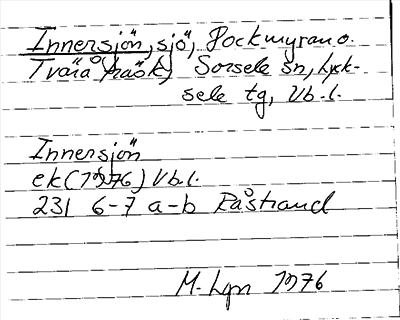 Innersjön, sjö, Pockmyran o.
Tvärå träsk, Sorsele sn, Lyck-
sele tg, Vb.l.
Innersjön
ek (1976) Vb.l.
231 6-7 a-b Råstrand
M. Lgn 1976